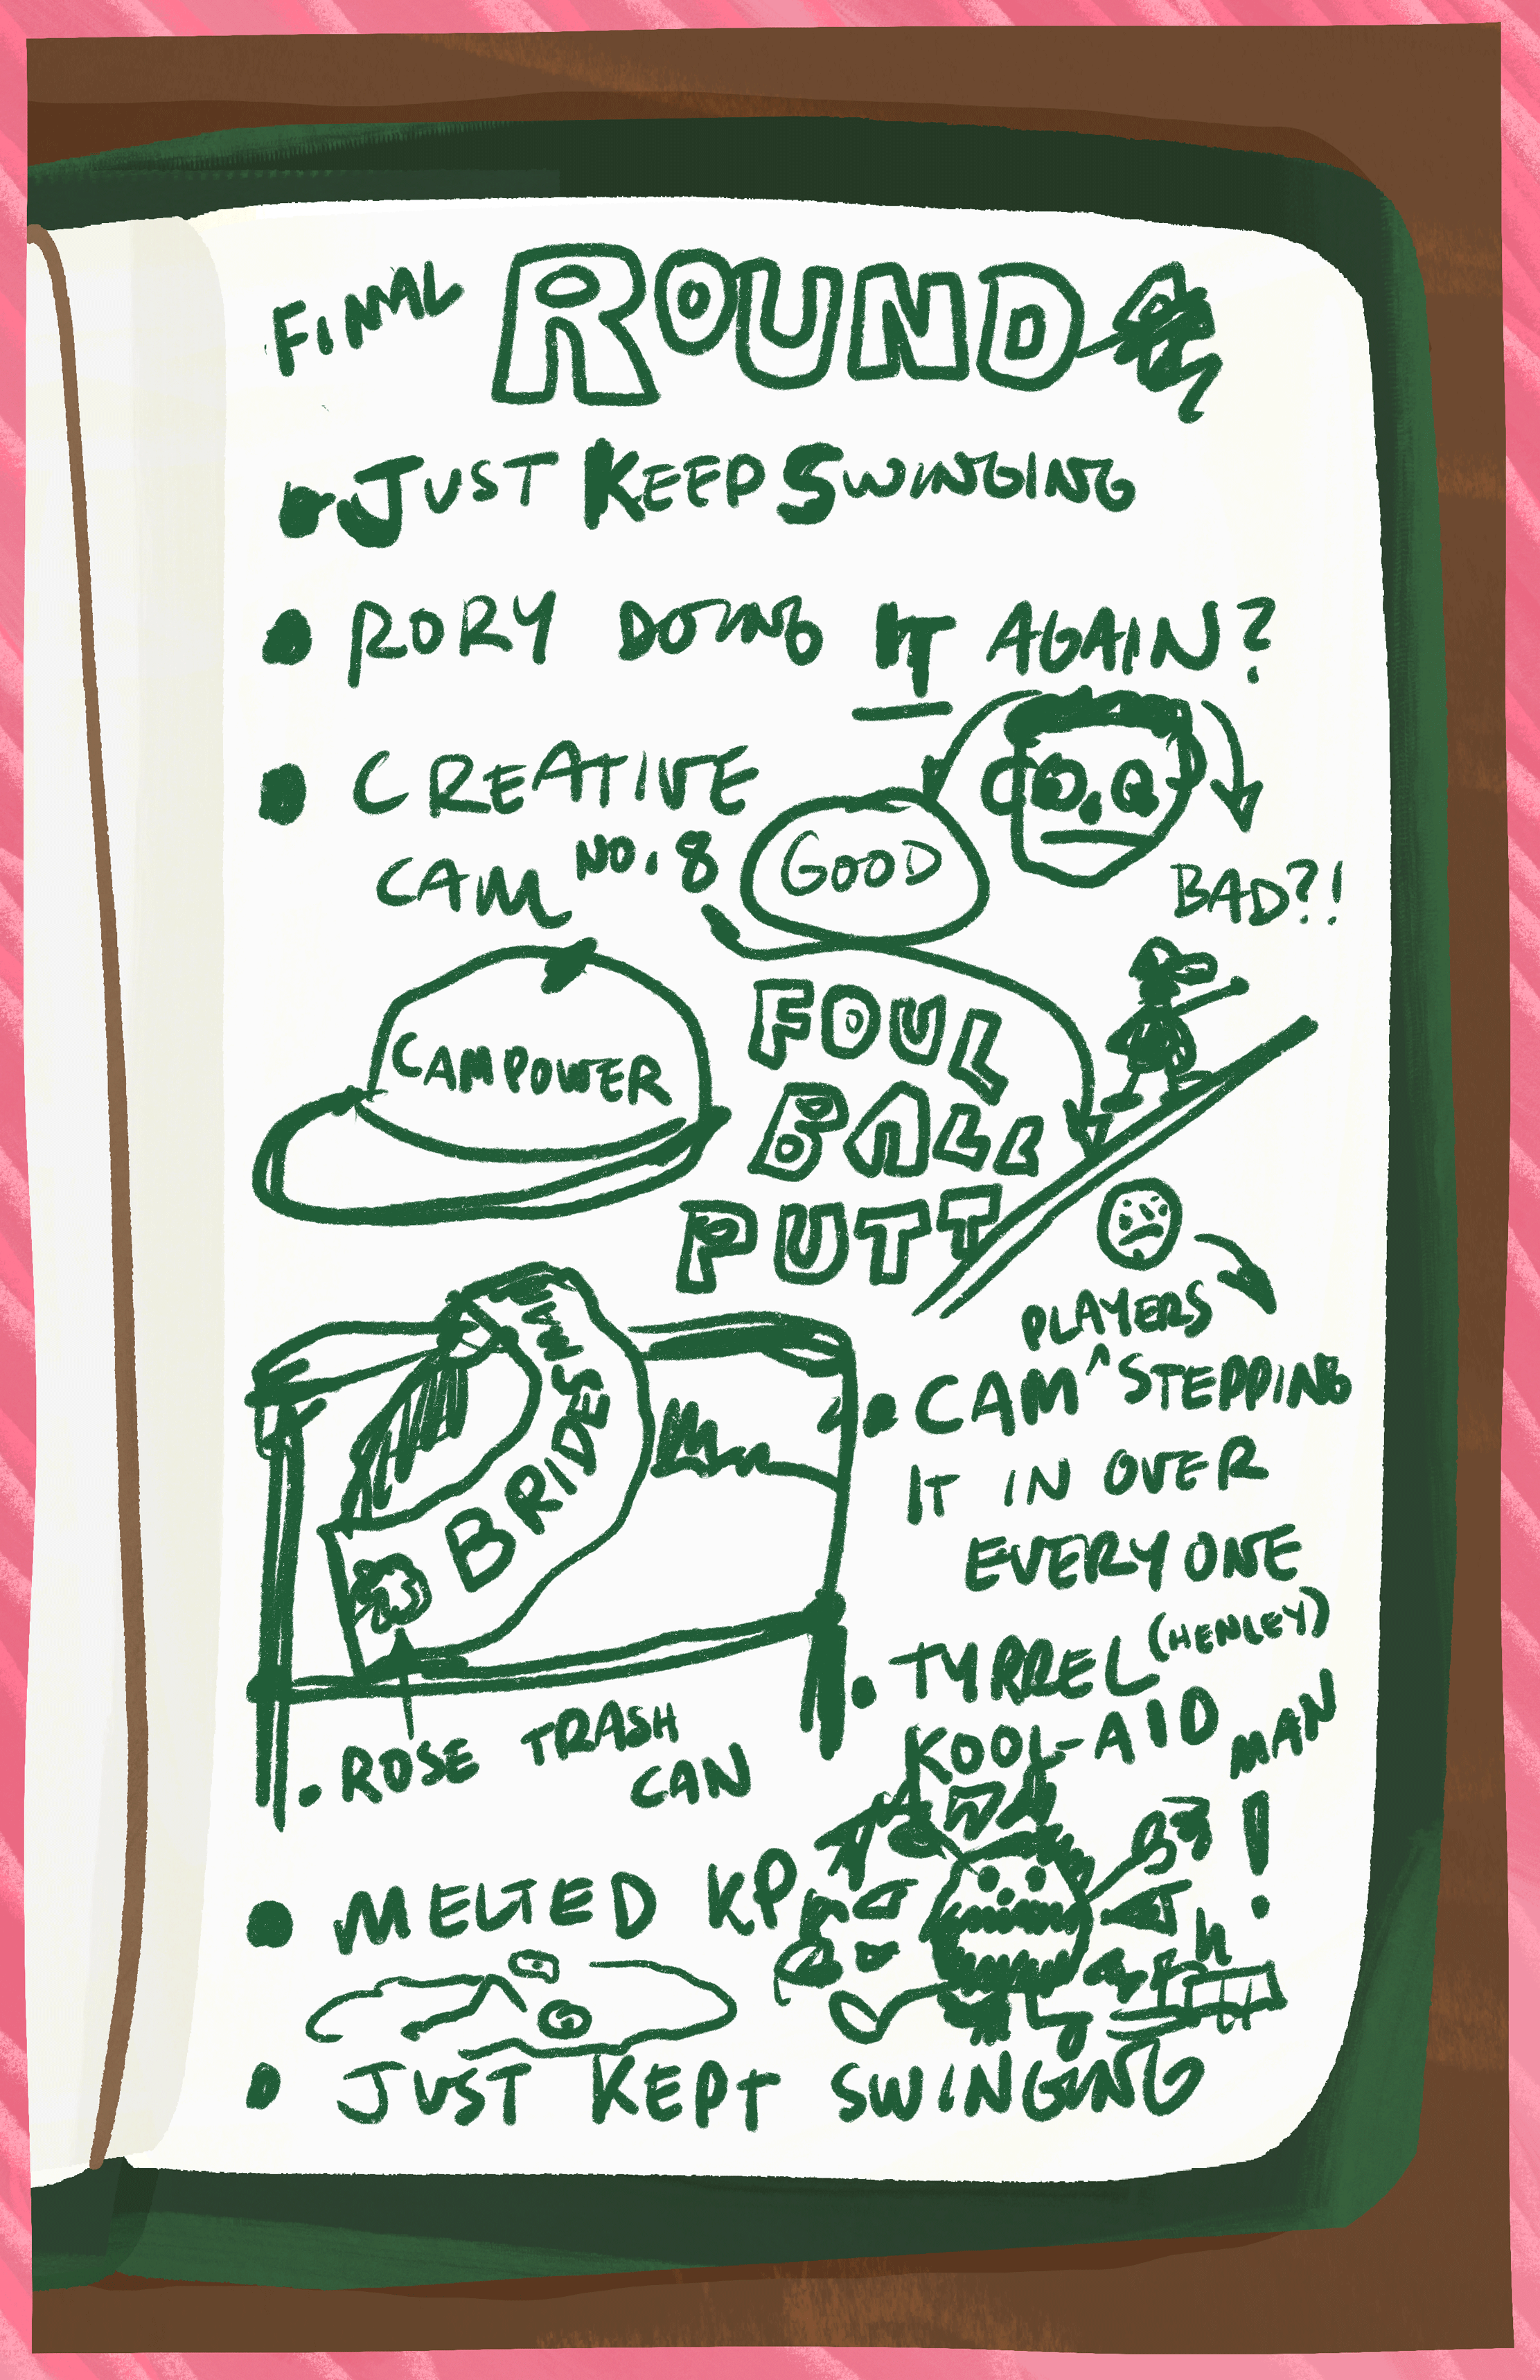 FINAL ROUND
JUST KEEP SWINGING
RORY DOING IT AGAIN?
CREATIVE
CAM NO. 8
GOOD
BAD?!
CAMPOWER
FOUL
BALL
PUTT
PLAYERS
CAM ^ STEPPING
IT IN OVER
EVERYONE
BRIDESMA
ROSE TRASH
CAN
TYRREL (HENLEY)
KOOL-AID MAN!
MELTED KP
JUST KEPT SWINGING